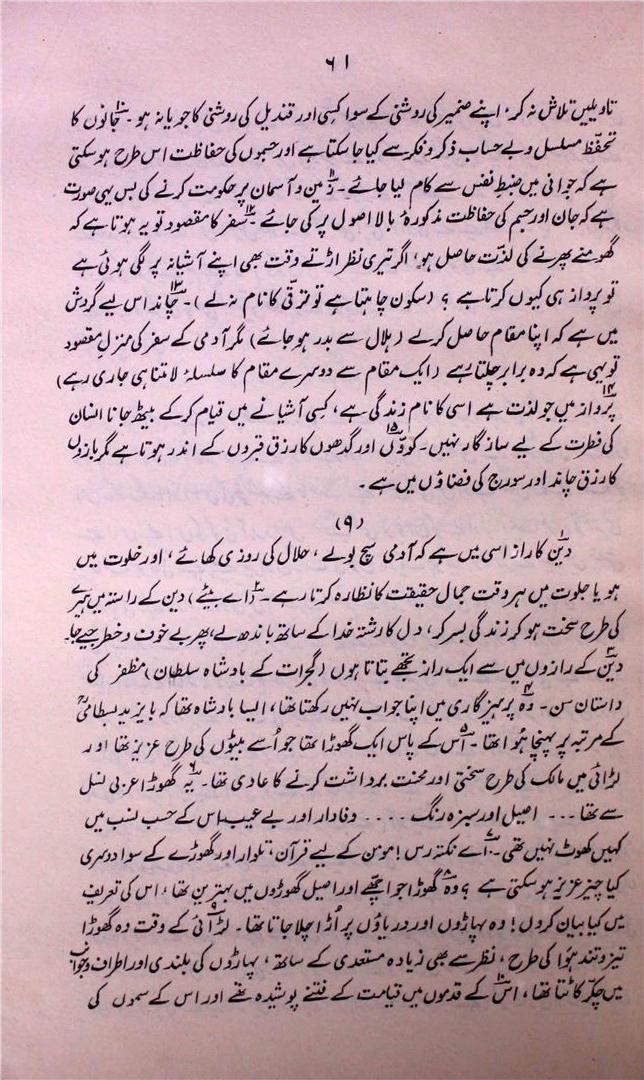 ۶۱
تاویلیں تلاش نہ کر، اپنے ضمیر کی روشنی کے سوا کسی اور قندیل کی روشنی کا جویا نہ ہو۔ ۱۰جانوں کا
تحفّظ مسلسل و بے حساب ذکر و فکر سے کیا جا سکتا ہے اور جسموں کی حفاظت اس طرح ہو سکتی
ہے کہ جوانی میں ضبطِ نفس سے کام لیا جائے۔ ۱۱زمین و آسمان پر حکومت کرنے کی بس یہی صورت
ہے کہ جان اور جسم کی حفاظت مذکورۂ بالا اصول پر کی جائے۔ ۱۲سفر کا مقصود تو یہ ہوتا ہے کہ
گھومنے پھرنے کی لذّت حاصل ہو، اگر تیری نظر اڑتے وقت بھی اپنے آشیانہ پر لگی ہوئی ہے
تو پرواز ہی کیوں کرتا ہے؟ (سکون چاہتا ہے تو ترقی کا نام نہ لے)۔ ۱۳چاند اس لیے گردش
میں ہے کہ اپنا مقام حاصل کرلے (ہلال سے بدر ہو جائے) مگر آدمی کے سفر کی منزلِ مقصود
تو یہی ہے کہ وہ برابر چلتا رہے (ایک مقام سے دوسرے مقام کا سلسلۂ لامتناہی جاری رہے)
۱۴پرواز میں جو لذت ہے اسی کا نام زندگی ہے، کسی آشیانے میں قیام کرکے بیٹھ جانا انسان
کی فطرت کے لیے سازگار نہیں۔ ۱۵کووّں اور گدھوں کا رزق قبروں کے اندر ہوتا ہے مگر بازوں
کا رزق چاند اور سورج کی فضاؤں میں ہے۔
(۹)
۱دین کا راز اسی میں ہے کہ آدمی سچ بولے، حلال کی روزی کھائے، اور خلوت میں
ہو یا جلوت میں ہر وقت جمالِ حقیقت کا نظارہ کرتا رہے۔ ۲(اے بیٹے) دین کے راستہ میں ہیرے
کی طرح سخت ہو کر زندگی بسر کر، دل کا رشتہ خدا کے ساتھ باندھ لے، پھر بے خوف و خطر جیے جا۔
۳دین کے رازوں میں سے ایک راز تجھے بتاتا ہوں (گجرات کے بادشاہ سلطان) مظفر کی
داستان سن۔ ۴وہ پرہیزگاری میں اپنا جواب نہیں رکھتا تھا، ایسا بادشاہ تھا کہ بایزید بسطامیؒ
کے مرتبہ پر پہنچا ہُوا تھا۔ ۵اُس کے پاس ایک گھوڑا تھا جو اُسے بیٹوں کی طرح عزیز تھا اور
لڑائی میں مالک کی طرح سختی اور محنت برداشت کرنے کا عادی تھا۔ ۶یہ گھوڑا عربی نسل
سے تھا ۔۔۔ اصیل اور سبزہ رنگ ۔۔۔۔ وفادار اور بے عیب، اس کے حسب نسب میں
کہیں کھوٹ نہیں تھی۔ ۷اے نکتہ رس! مومن کے لیے قرآن، تلوار اور گھوڑے کے سوا دوسری
کیا چیز عزیز ہو سکتی ہے؟ ۸وہ گھوڑا جو اچھے اور اصیل گھوڑوں میں بہترین تھا، اس کی تعریف
میں کیا بیان کروں! وہ پہاڑوں اور دریاؤں پر اُڑا چلا جاتا تھا۔ ۹لڑائی کے وقت وہ گھوڑا
تیز و تند ہَوا کی طرح، نظر سے بھی زیادہ مستعدی کے ساتھ، پہاڑوں کی بلندی اور اطراف و جوانب
میں چکّر کاٹتا تھا، ۱۰اس کے قدموں میں قیامت کے فتنے پوشیدہ تھے اور اس کے سموں کی